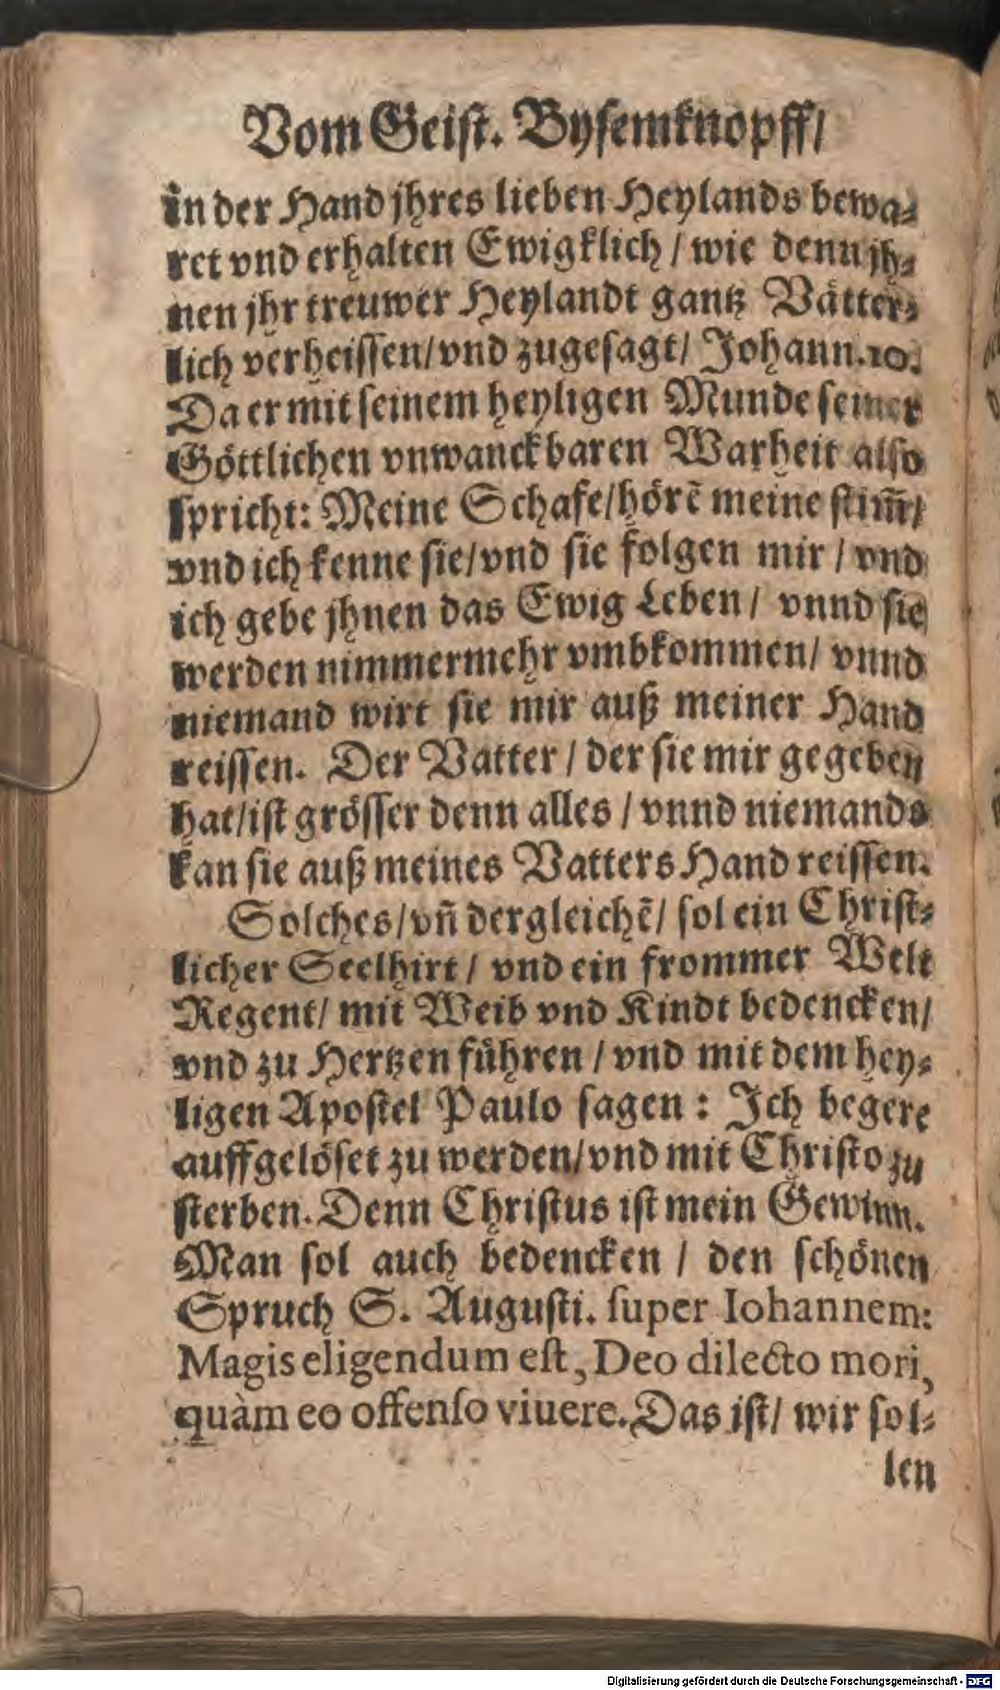 Vom Geiſt. Byſemknopff/
in der Hand jhres lieben Heylands bewa⸗
ret vnd erhalten Ewigklich / wie denn jh⸗
nen jhr treuwer Heylandt gantz Vaͤtter⸗
lich verheiſſen/vnd zugeſagt/ Johann.10.
Da er mit ſeinem heyligen Munde ſeiner
Goͤttlichen vnwanckbaren Warheit alſo
ſpricht: Meine Schafe/hoͤrẽ meine ſtim̃/
vnd ich kenne ſie/vnd ſie folgen mir / vnd
ich gebe jhnen das Ewig Leben / vnnd ſie
werden nimmermehr vmbkommen/ vnnd
niemand wirt ſie mir auß meiner Hand
reiſſen. Der Vatter / der ſie mir gegeben
hat/iſt groͤſſer denn alles / vnnd niemands
kan ſie auß meines Vatters Hand reiſſen.
Solches/vñ dergleichẽ/ ſol ein Chriſt⸗
licher Seelhirt / vnd ein frommer Welt
Regent/ mit Weib vnd Kindt bedencken/
vnd zu Hertzen fuͤhren / vnd mit dem hey⸗
ligen Apoſtel Paulo ſagen : Ich begere
auffgeloͤſet zu werden/vnd mit Chriſto zu
ſterben. Denn Chriſtus iſt mein Gewinn.
Man ſol auch bedencken / den ſchoͤnen
Spruch S. Auguſti. ſuper Iohannem:
Magis eligendum eſt, Deo dilecto mori,
quàm eo offenſo viuere. Das iſt/ wir ſol⸗
len
Digitalisierung gefördert durch die Deutsche Forschungsgemeinschaft - DFG